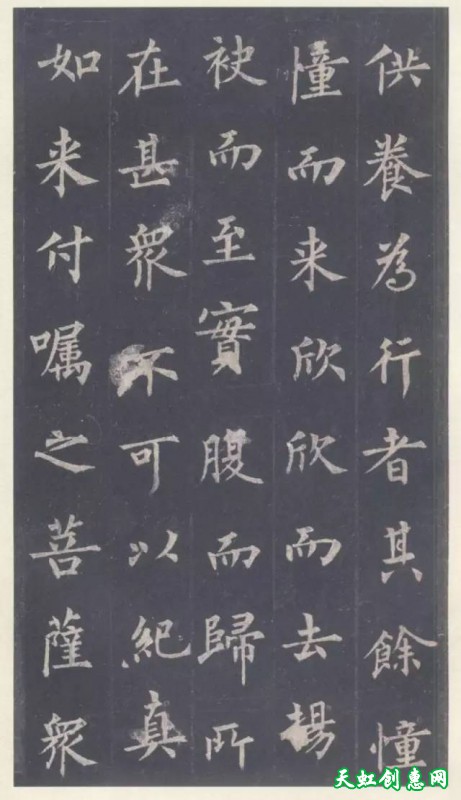 供養為行者其餘憧
憧而来欣欣而去揚
袂而至實腹而歸所
在甚衆不可以紀真
如来付嘱之菩薩衆
天虹创惠网